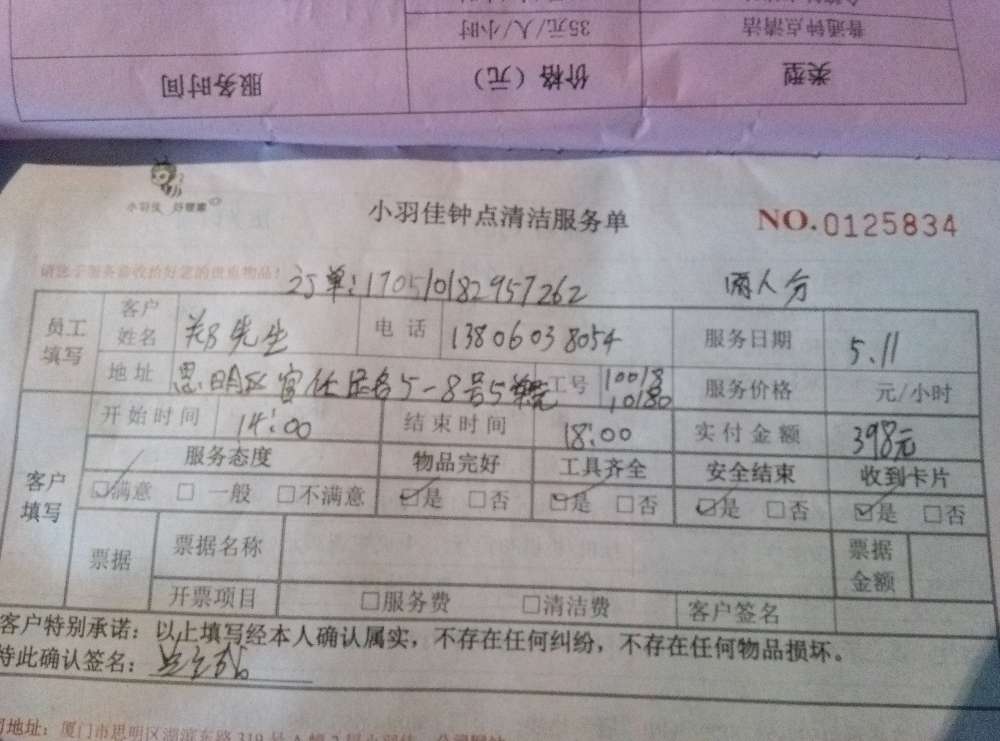 普通钟点清洁 35元/人/小时
类型 价格（元） 服务时间
小羽佳 好管家
小羽佳钟点清洁服务单 NO.0125834
请您于服务前收拾好您的贵重物品！
订单：170510182957262 两人分
员工填写 客户姓名 郑先生 电话 13806038054 服务日期 5.11
地址 思明区官任居名5-8号5单元 工号 10018 10180 服务价格 元/小时
客户填写 开始时间 14:00 结束时间 18:00 实付金额 398元
服务态度 物品完好 工具齐全 安全结束 收到卡片
☑满意 □一般 □不满意 ☑是 □否 ☑是 □否 ☑是 □否 ☑是 □否
票据 票据名称 票据金额
开票项目 □服务费 □清洁费 客户签名
客户特别承诺：以上填写经本人确认属实，不存在任何纠纷，不存在任何物品损坏。
特此确认签名：
司地址：厦门市思明区湖滨东路319号A幢2层小羽佳